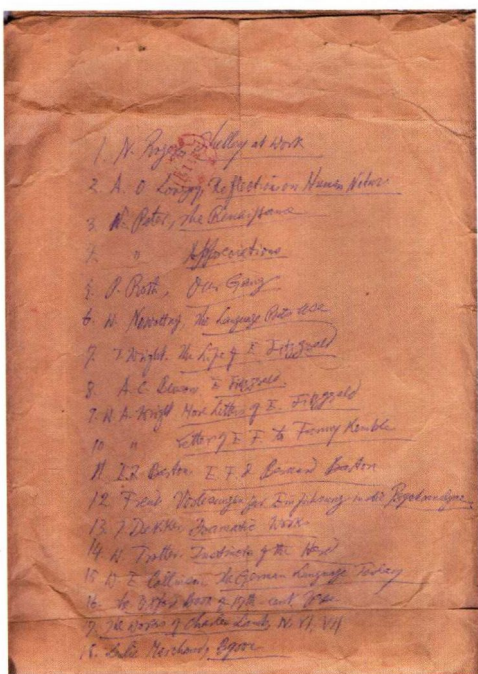 1. N. Rogers Shelley at Work
2. A. O. Lovejoy, Reflections on Human Nature
3. W. Pater, The Renaissance
4. " Appreciations
5. P. Roth, Our Gang
6. W. Nowottny, The Language Poets Use
7. T. Wright. The Life of E. Fitzgerald
8. A. C. Benson E. Fitzgerald.
9. W. A. Wright More Letters of E. Fitzgerald
10 " Letters of E. F. to Fanny Kemble
11 Barton E F & Bernard Barton
12. Freud Vorlesungen zur Einführung in die Psychoanalyse
13. T Dekker Dramatic Works
14. W. Trotter. Instincts of the Herd
15 W. E. Collinson The German Language Today
16. Oxford Book of 19th-cent. Verse
17. The Works of Charles Lamb,
18. Leslie Marchand, Byron